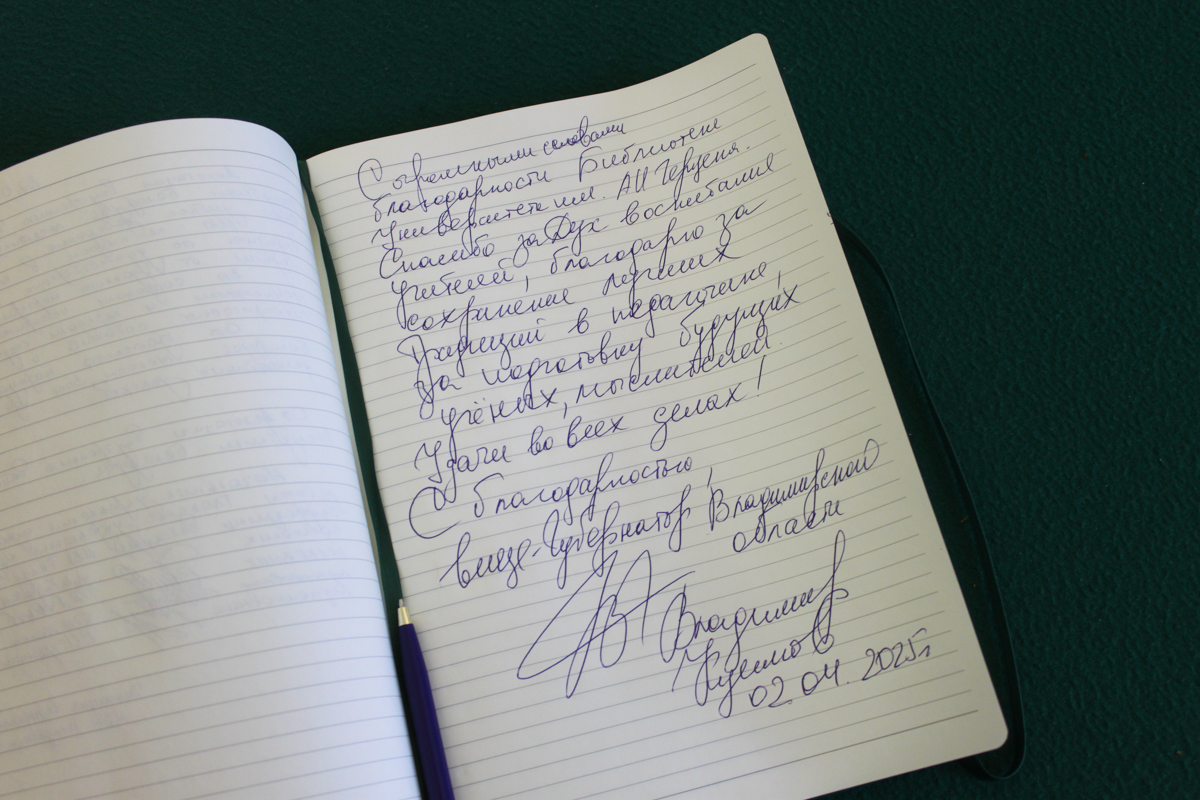 С огромными словами
благодарности Библиотеке
Университета им. АИ Герцена.
Спасибо за Дух воспитания
учителей, благодарю за
сохранение лучших
Традиций в педагогике,
за подготовку будущих
учёных, мыслителей.
Удачи во всех делах!
С благодарностью,
вице-Губернатор Владимирской
области
Владимир
Куимов
02.04.2025г